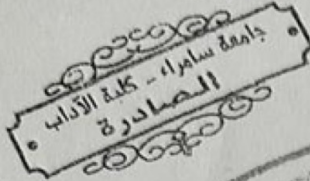 جامعة سامراء - كلية الآداب
الصادرة